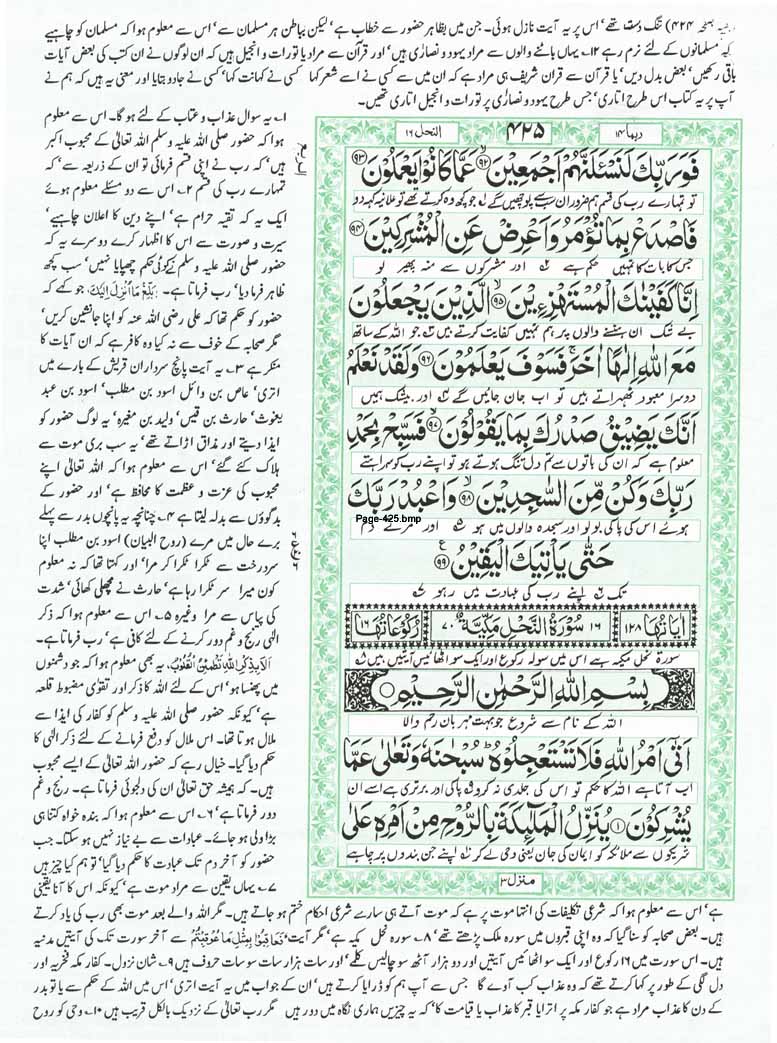 بقیہ صفحہ ۴۲۴) تنگ دست تھے' اس پر یہ آیت نازل ہوئی۔ جن میں بظاہر حضور سے خطاب ہے' لیکن بباطن ہر مسلمان سے' اس سے معلوم ہوا کہ مسلمان کو چاہیے
کہ مسلمانوں کے لئے نرم رہے ۱۲۔ یہاں بانٹنے والوں سے مراد یہود و نصاریٰ ہیں' اور قرآن سے مراد یا تورات و انجیل ہیں کہ ان لوگوں نے ان کتب کی بعض آیات
باقی رکھیں' بعض بدل دیں' یا قرآن سے قران شریف ہی مراد ہے کہ ان میں سے کسی نے اسے شعر کہا' کسی نے کہانت کہا' کسی نے جادو بتایا اور معنی یہ ہیں کہ ہم نے
آپ پر یہ کتاب اس طرح اتاری' جس طرح یہود و نصاریٰ پر تورات و انجیل اتاری تھیں۔
ربما ۱۴
۴۲۵
النحل ۱۶
فَوَرَبِّكَ لَنَسْـَٔلَنَّهُمْ اَجْمَعِيْنَ ﴿۹۲﴾ عَمَّا كَانُوْا يَعْمَلُوْنَ ﴿۹۳﴾
تو تمہارے رب کی قسم ہم ضرور ان سب سے پوچھیں گے جو کچھ وہ کرتے تھے تو علانیہ کہہ دو
فَاصْدَعْ بِمَا تُؤْمَرُ وَاَعْرِضْ عَنِ الْمُشْرِكِيْنَ ﴿۹۴﴾
جس بات کا تمہیں حکم ہے اور مشرکوں سے منہ پھیر لو
اِنَّا كَفَيْنٰكَ الْمُسْتَهْزِءِيْنَ ﴿۹۵﴾ الَّذِيْنَ يَجْعَلُوْنَ
بے شک ان ہنسنے والوں پر ہم تمہیں کفایت کرتے ہیں جو اللہ کے ساتھ
مَعَ اللّٰهِ اِلٰهًا اٰخَرَ ۚ فَسَوْفَ يَعْلَمُوْنَ ﴿۹۶﴾ وَلَقَدْ نَعْلَمُ
دوسرا معبود ٹھہراتے ہیں تو اب جان جائیں گے اور بیشک ہمیں
اَنَّكَ يَضِيْقُ صَدْرُكَ بِمَا يَقُوْلُوْنَ ﴿۹۷﴾ فَسَبِّحْ بِحَمْدِ
معلوم ہے کہ ان کی باتوں سے تم دل تنگ ہوتے ہو تو اپنے رب کو سراہتے
رَبِّكَ وَكُنْ مِّنَ السّٰجِدِيْنَ ﴿۹۸﴾ وَاعْبُدْ رَبَّكَ
Page-425.bmp
ہوئے اس کی پاکی بولو اور سجدہ والوں میں ہو اور مرتے دم
حَتّٰى يَاْتِيَكَ الْيَقِيْنُ ﴿۹۹﴾
تک اپنے رب کی عبادت میں رہو
اٰيَاتُهَا ۱۲۸ ۱۶ سُوْرَةُ النَّحْلِ مَكِّيَّةٌ ۷۰ رُكُوْعَاتُهَا ۱۶
سورۃ نحل مکیہ ہے اس میں سولہ رکوع اور ایک سو اٹھائیس آیتیں ہیں
بِسْمِ اللّٰهِ الرَّحْمٰنِ الرَّحِيْمِ
اللہ کے نام سے شروع جو بہت مہربان رحم والا
اَتٰۤى اَمْرُ اللّٰهِ فَلَا تَسْتَعْجِلُوْهُ ؕ سُبْحٰنَهٗ وَتَعٰلٰى عَمَّا
اب آتا ہے اللہ کا حکم تو اس کی جلدی نہ کرو پاکی اور برتری ہے اسے ان
يُشْرِكُوْنَ ﴿۱﴾ يُنَزِّلُ الْمَلٰٓئِكَةَ بِالرُّوْحِ مِنْ اَمْرِهٖ عَلٰى
شریکوں سے ملائکہ کو ایمان کی جان یعنی وحی لے کر اپنے جن بندوں پر چاہے
منزل ۳
۱۔ یہ سوال عذاب و عتاب کے لئے ہو گا۔ اس سے معلوم
ہوا کہ حضور صلی اللہ علیہ و سلم اللہ تعالیٰ کے محبوب اکبر
ہیں' کہ رب نے اپنی قسم فرمائی تو ان کے ذریعہ سے' کہ
تمہارے رب کی قسم ۲۔ اس سے دو مسئلے معلوم ہوئے
ایک یہ کہ تقیہ حرام ہے' اپنے دین کا اعلان چاہیے'
سیرت و صورت سے اس کا اظہار کرے دوسرے یہ کہ
حضور صلی اللہ علیہ وسلم نے کوئی حکم چھپایا نہیں' سب کچھ
ظاہر فرما دیا' رب فرماتا ہے۔ بَلِّغْ مَا اُنْزِلَ اِلَيْكَ جو کہے کہ
حضور کو حکم تھا کہ علی رضی اللہ عنہ کو اپنا جانشین کریں'
مگر صحابہ کے خوف سے نہ کیا وہ کافر ہے کہ ان آیات کا
منکر ہے ۳۔ یہ آیت پانچ سرداران قریش کے بارے میں
اتری' عاص بن وائل اسود بن مطلب' اسود بن عبد
یغوث' حارث بن قیس' ولید بن مغیرہ' یہ لوگ حضور کو
ایذا دیتے اور مذاق اڑاتے تھے' یہ سب بری موت سے
ہلاک کئے گئے' اس سے معلوم ہوا کہ اللہ تعالیٰ اپنے
محبوب کی عزت و عظمت کا محافظ ہے' اور حضور کے
بدگوؤں سے بدلہ لیتا ہے ۴۔ چنانچہ یہ پانچوں بدر سے پہلے
برے حال میں مرے (روح البیان) اسود بن مطلب اپنا
سر درخت سے ٹکرا ٹکرا کر مرا' اور کہتا تھا کہ نہ معلوم
کون میرا سر ٹکرا رہا ہے' حارث نے مچھلی کھائی' شدت
کی پیاس سے مرا وغیرہ ۵۔ اس سے معلوم ہوا کہ ذکر
الٰہی رنج و غم دور کرنے کے لئے کافی ہے' رب فرماتا ہے۔
اَلَا بِذِكْرِ اللّٰهِ تَطْمَئِنُّ الْقُلُوْبُ، یہ بھی معلوم ہوا کہ جو دشمنوں
میں پھنسا ہو' اس کے لئے اللہ کا ذکر اور تقویٰ مضبوط قلعہ
ہے' کیونکہ حضور صلی اللہ علیہ وسلم کو کفار کی ایذا سے
ملال ہوتا تھا۔ اس ملال کو دفع فرمانے کے لئے ذکر الٰہی کا
حکم دیا گیا۔ خیال رہے کہ حضور اللہ تعالیٰ کے ایسے محبوب
ہیں۔ کہ ہمیشہ حق تعالیٰ ان کی دلجوئی فرماتا ہے۔ رنج و غم
دور فرماتا ہے' ۶۔ اس سے معلوم ہوا کہ بندہ خواہ کتنا ہی
بڑا ولی ہو جائے۔ عبادات سے بے نیاز نہیں ہو سکتا۔ جب
حضور کو آخر دم تک عبادت کا حکم دیا گیا' تو ہم کیا چیز ہیں
۷۔ یہاں یقین سے مراد موت ہے' کیونکہ اس کا آنا یقینی
ہے' اس سے معلوم ہوا کہ شرعی تکلیفات کی انتہا موت پر ہے کہ موت آتے ہی سارے شرعی احکام ختم ہو جاتے ہیں۔ مگر اللہ والے بعد موت بھی رب کی یاد کرتے
ہیں۔ بعض صحابہ کو سنا گیا کہ وہ اپنی قبروں میں سورہ ملک پڑھتے تھے' ۸۔ سورہ نحل مکیہ ہے' مگر آیت' فَعَاقِبُوْا بِمِثْلِ مَا عُوْقِبْتُمْ سے آخر سورت تک کی آیتیں مدنیہ
ہیں۔ اس سورت میں ۱۶ رکوع اور ایک سو اٹھائیس آیتیں اور دو ہزار آٹھ سو چالیس کلمے' اور سات ہزار سات سو سات حروف ہیں ۹۔ شان نزول۔ کفار مکہ فخریہ اور
دل لگی کے طور پر کہا کرتے تھے کہ وہ عذاب کب آوے گا جس سے آپ ہم کو ڈرایا کرتے ہیں' ان کے جواب میں یہ آیت اتری' اس میں اللہ کے حکم سے یا تو بدر
کے دن کا عذاب مراد ہے جو کفار مکہ پر اترا یا قبر کا عذاب یا قیامت کا' کہ یہ چیزیں ہماری نگاہ میں دور ہیں مگر رب تعالیٰ کے نزدیک بالکل قریب ہیں ۱۰۔ وحی کو روح